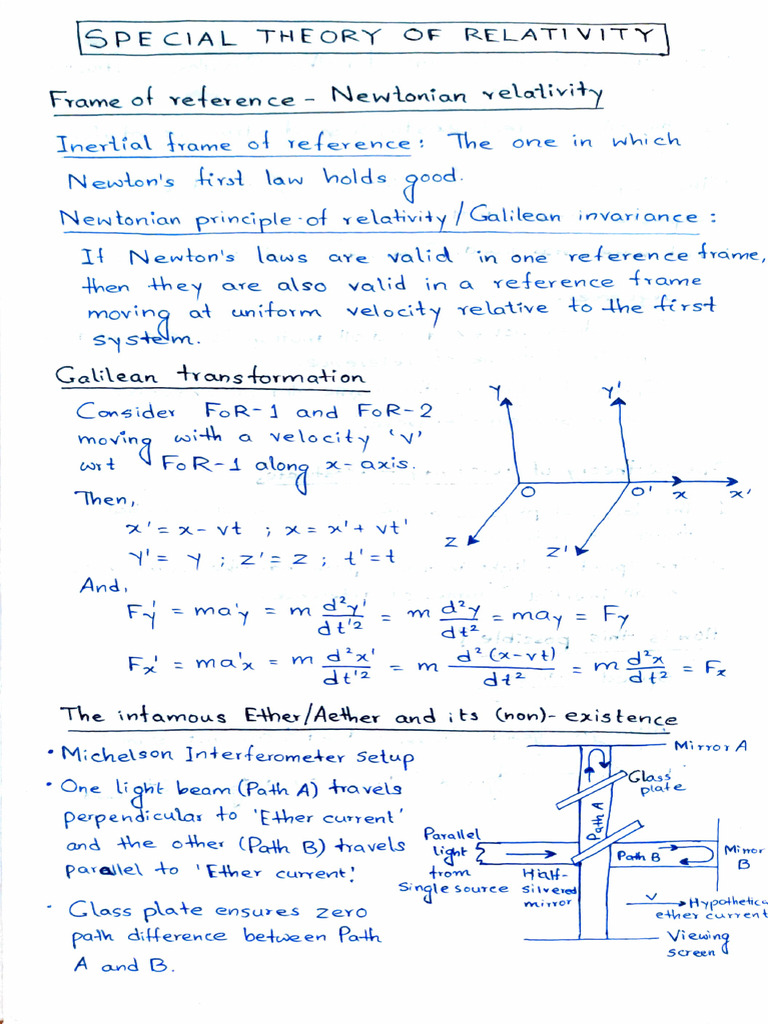 SPECIAL THEORY OF RELATIVITY
Frame of reference - Newtonian relativity
Inertial frame of reference: The one in which
Newton's first law holds good.
Newtonian principle of relativity/Galilean invariance:
If Newton's laws are valid in one reference frame,
then they are also valid in a reference frame
moving at uniform velocity relative to the first
system.
Galilean transformation
Consider FoR-1 and FoR-2
moving with a velocity 'v'
wrt FoR-1 along x-axis.
Then,
x' = x - vt ; x = x' + vt'
Y' = Y ; z' = z ; t' = t
Y
Y'
O
O'
x
x'
Z
Z'
And,
Fy' = ma'y = m d²y'/dt'² = m d²y/dt² = may = Fy
Fx' = ma'x = m d²x'/dt'² = m d²(x-vt)/dt² = m d²x/dt² = Fx
The infamous Ether/Aether and its (non)-existence
• Michelson Interferometer setup
• One light beam (Path A) travels
perpendicular to 'Ether current'
and the other (Path B) travels
parallel to 'Ether current'.
• Glass plate ensures zero
path difference between Path
A and B.
Mirror A
Glass
plate
Path A
Parallel
light
from
single source
Half-
silvered
mirror
Path B
Mirror
B
v
Hypothetica
ether current
Viewing
screen